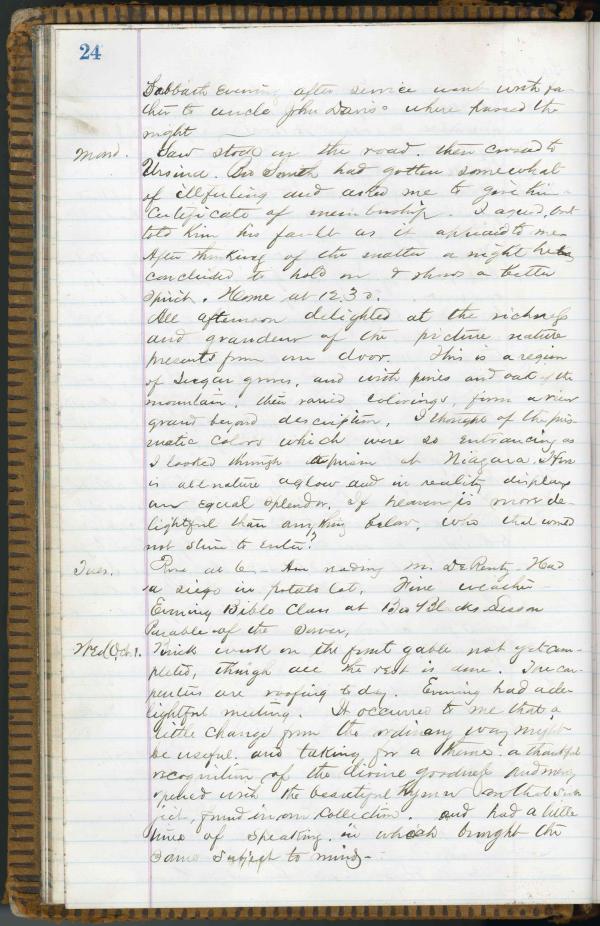 24
Sabbath Evening after service went with fa-
ther to uncle John Davis' where passed the
night
Mond. Saw stock in the road. then crossed to
Ursina. Bro Smith had gotten somewhat
of illfeeling and asked me to give him
Certificate of membership. I agreed, but
told him his fault as it appeared to me
After thinking of the matter a night he
concluded to hold on & show a better
spirit. Home at 12.30.
All afternoon delighted at the richness
and grandeur of the picture nature
presents from our door. This is a region
of Sugar groves, and with pines and oak of the
mountain, their varied colorings, form a view
grand beyond description, I thought of the pris-
matic colors which were so entrancing as
I looked through a prism at Niagara. Here
is all nature aglow and in reality displays
an equal splendor. If heaven is more de-
lightful than anything below, who that would
not strive to enter!
Tues. Rose at 6. Am reading M. De Renty. Had
a siege in potato lot. Fine weather
Evening Bible Class at Bro Lesson
Parable of the Sower,
Wed Oct. 1. Brick work on the front gable not yet com-
pleted, though all the rest is done. The car-
penters are roofing to day. Evening had a de-
lightful meeting. It occurred to me that a
little change from the ordinary way might
be useful. and taking for a theme. a thankful
recognition of the divine goodness and mercy
opened with the beautiful hymn on that sub-
ject, found in our Collection. and had a little
time of speaking. in which brought the
same subject to mind-